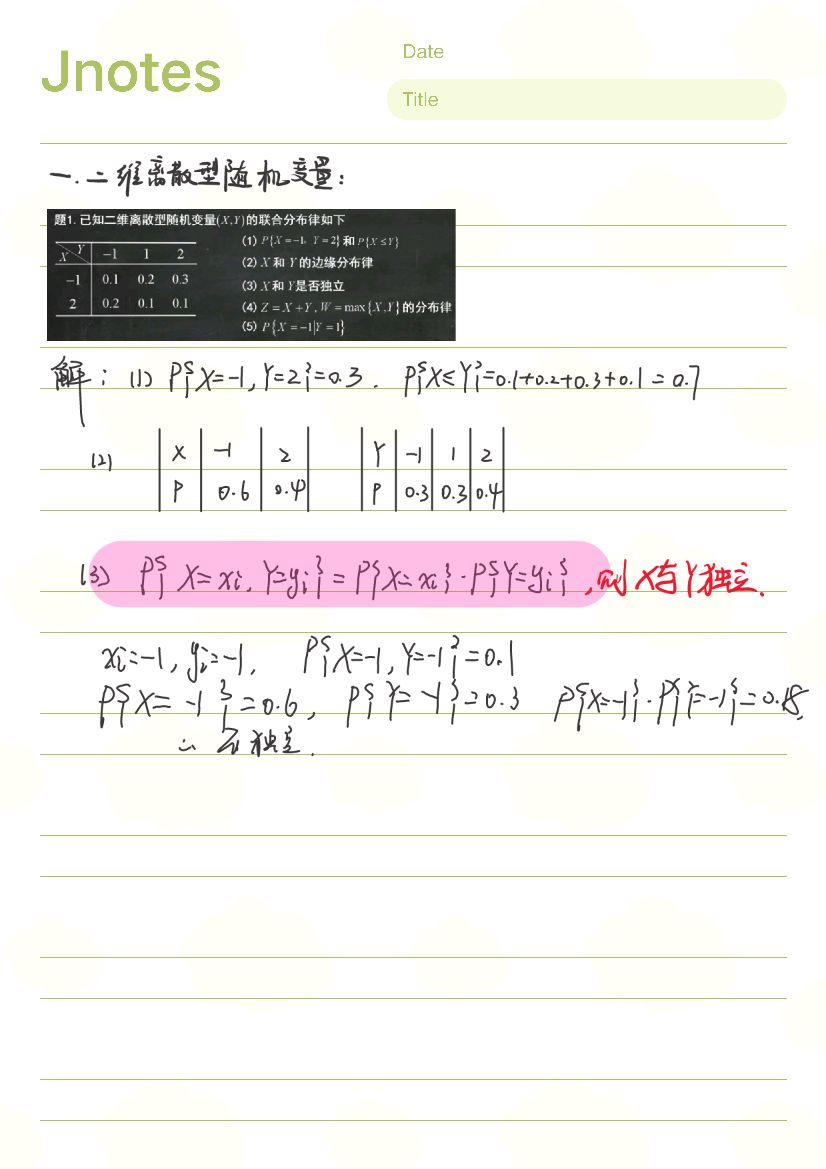 Jnotes
Date
Title
一.二维离散型随机变量:
题1. 已知二维离散型随机变量(X,Y)的联合分布律如下
X Y -1 1 2
-1 0.1 0.2 0.3
2 0.2 0.1 0.1
(1) P{X=-1, Y=2}和P{X≤Y}
(2) X 和 Y 的边缘分布律
(3) X和Y是否独立
(4) Z=X+Y, W=max{X,Y}的分布律
(5) P{X=-1|Y=1}
解: (1) P{X=-1, Y=2}=0.3. P{X≤Y}=0.1+0.2+0.3+0.1=0.7
(2) X -1 2 Y -1 1 2
P 0.6 0.4 P 0.3 0.3 0.4
(3) P{X=xi, Y=yi}=P{X=xi}·P{Y=yi}, 则X与Y独立.
xi=-1, yi=-1, P{X=-1, Y=-1}=0.1
P{X=-1}=0.6, P{Y=-1}=0.3 P{X=-1}·P{Y=-1}=0.18,
∴ 不独立.